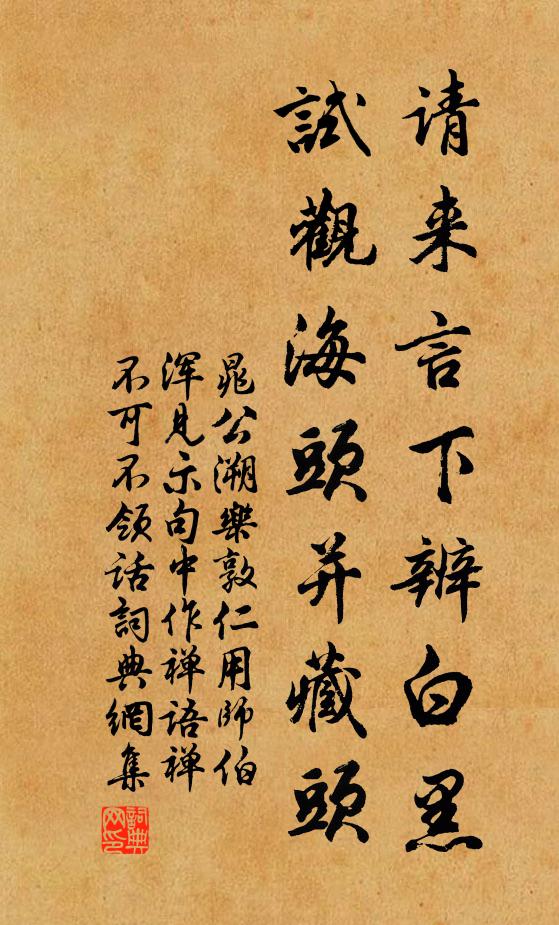 请来言下辨白黑
試觀海頭并藏頭
晁公溯樂敦仁用師伯
渾見示句中作禅語禅
不可不領話詞典網集
詞典网印